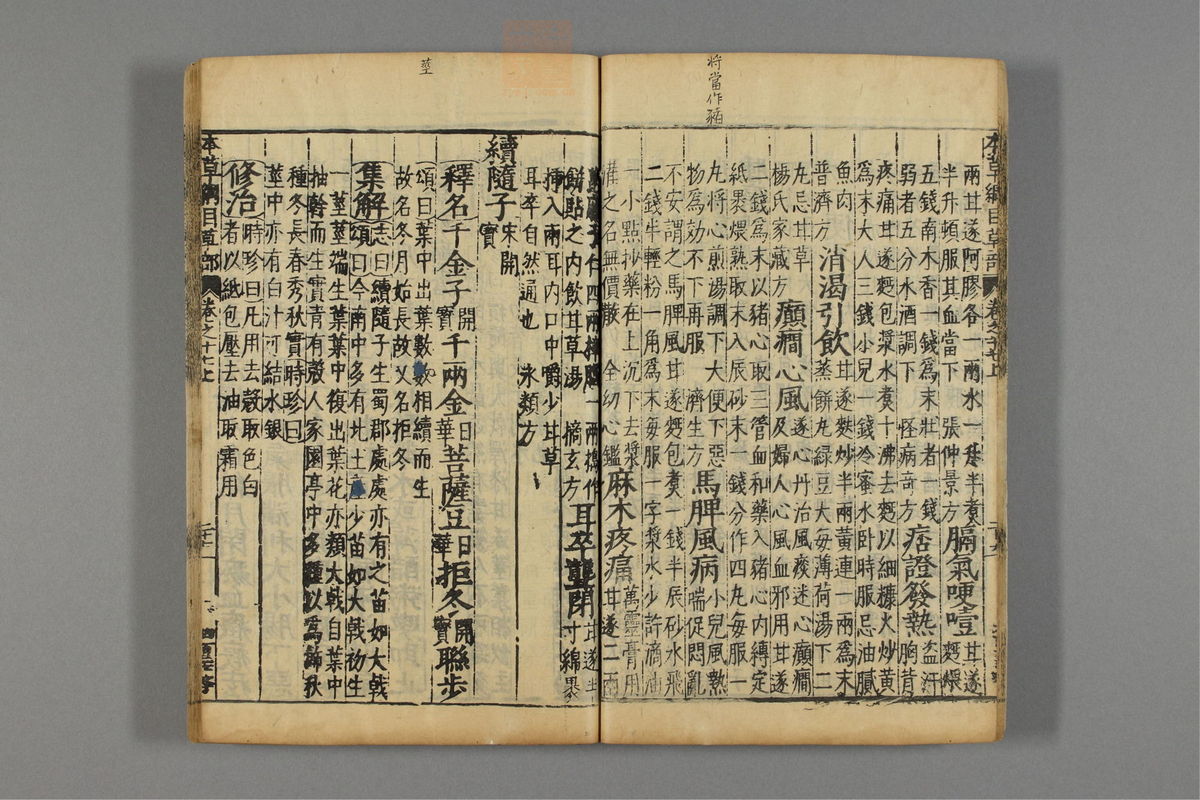 將當作猪
本草綱目草部 卷之十七上
兩甘遂阿膠各一兩水一升半煮
半升頓服其血當下張仲景方
膈氣哽噎
甘遂
麪煨
五錢南木香一錢為末壯者一錢
弱者五分水酒調下 怪病奇方
痞證發熱
盜汗
胸背
疼痛甘遂麪包漿水煮十沸去麪以細糠火炒黃
為末大人三錢小兒一錢冷蜜水臥時服忌油膩
魚肉
普濟方
消渴引飲
甘遂麩炒半兩黃連一兩為末
蒸餅丸綠豆大每薄荷湯下二
丸忌甘草
楊氏家藏方
癲癇心風
遂心丹治風痰迷心癲癇
及婦人心風血邪用甘遂
二錢為末以猪心取三管血和藥入猪心內縛定
紙裹煨熟取末入辰砂末一錢分作四丸每服一
丸將心煎湯調下大便下惡
物為効不下再服 濟生方
馬脾風病
小兒風熱
喘促悶亂
不安謂之馬脾風甘遂麪包煮一錢半辰砂水飛
二錢半輕粉一角為末每服一字漿水少許滴油
一小點抄藥在上沉下去漿
灌之名無價散 全幼心鑑
麻木疼痛
萬靈膏用
甘遂二兩
蓖麻子仁四兩樟腦一兩搗作
餅點之內飲甘草湯 摘玄方
耳卒聾閉
甘遂半
寸綿裹
插入兩耳內口中嚼少甘草
耳卒自然通也 永類方
續隨子 宋開寶
釋名 千金子 開寶 千兩金 日華 菩薩豆 日華 拒冬 開寶 聯步
頌曰葉中出葉數數相續而生
故名冬月始長故又名拒冬
集解 志曰續隨子生蜀郡處處亦有之苗如大戟
頌曰今南中多有北土產少苗如大戟初生
一莖莖端生葉葉中復出葉花亦類大戟自葉中
抽幹而生實青有殼人家園亭中多種以為飾秋
種冬長春秀秋實時珍曰
莖中亦有白汁可結水銀
修治 時珍曰凡用去殼取色白
者以紙包壓去油取霜用
本草綱目草部 卷之十七上
莖